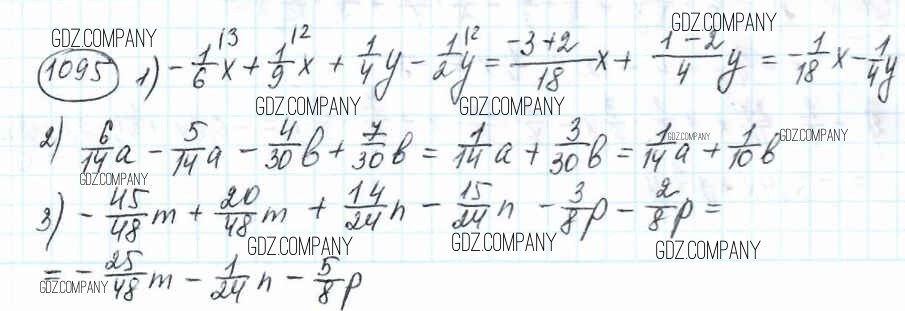 GDZ.COMPANY GDZ.COMPANY
1095 1) -1/6^{13}x + 1/9^{12}x + 1/4y - 1/2^{12}y = (-3+2)/18 x + (1-2)/4 y = -1/18 x - 1/4 y
GDZ.COMPANY GDZ.COMPANY
2) 6/14 a - 5/14 a - 4/30 b + 7/30 b = 1/14 a + 3/30 b = 1/14 a + 1/10 b
GDZ.COMPANY GDZ.COMPANY
GDZ.COMPANY
3) -45/48 m + 20/48 m + 14/24 n - 15/24 n - 3/8 p - 2/8 p =
GDZ.COMPANY GDZ.COMPANY GDZ.COMPANY
= -25/48 m - 1/24 n - 5/8 p
GDZ.COMPANY